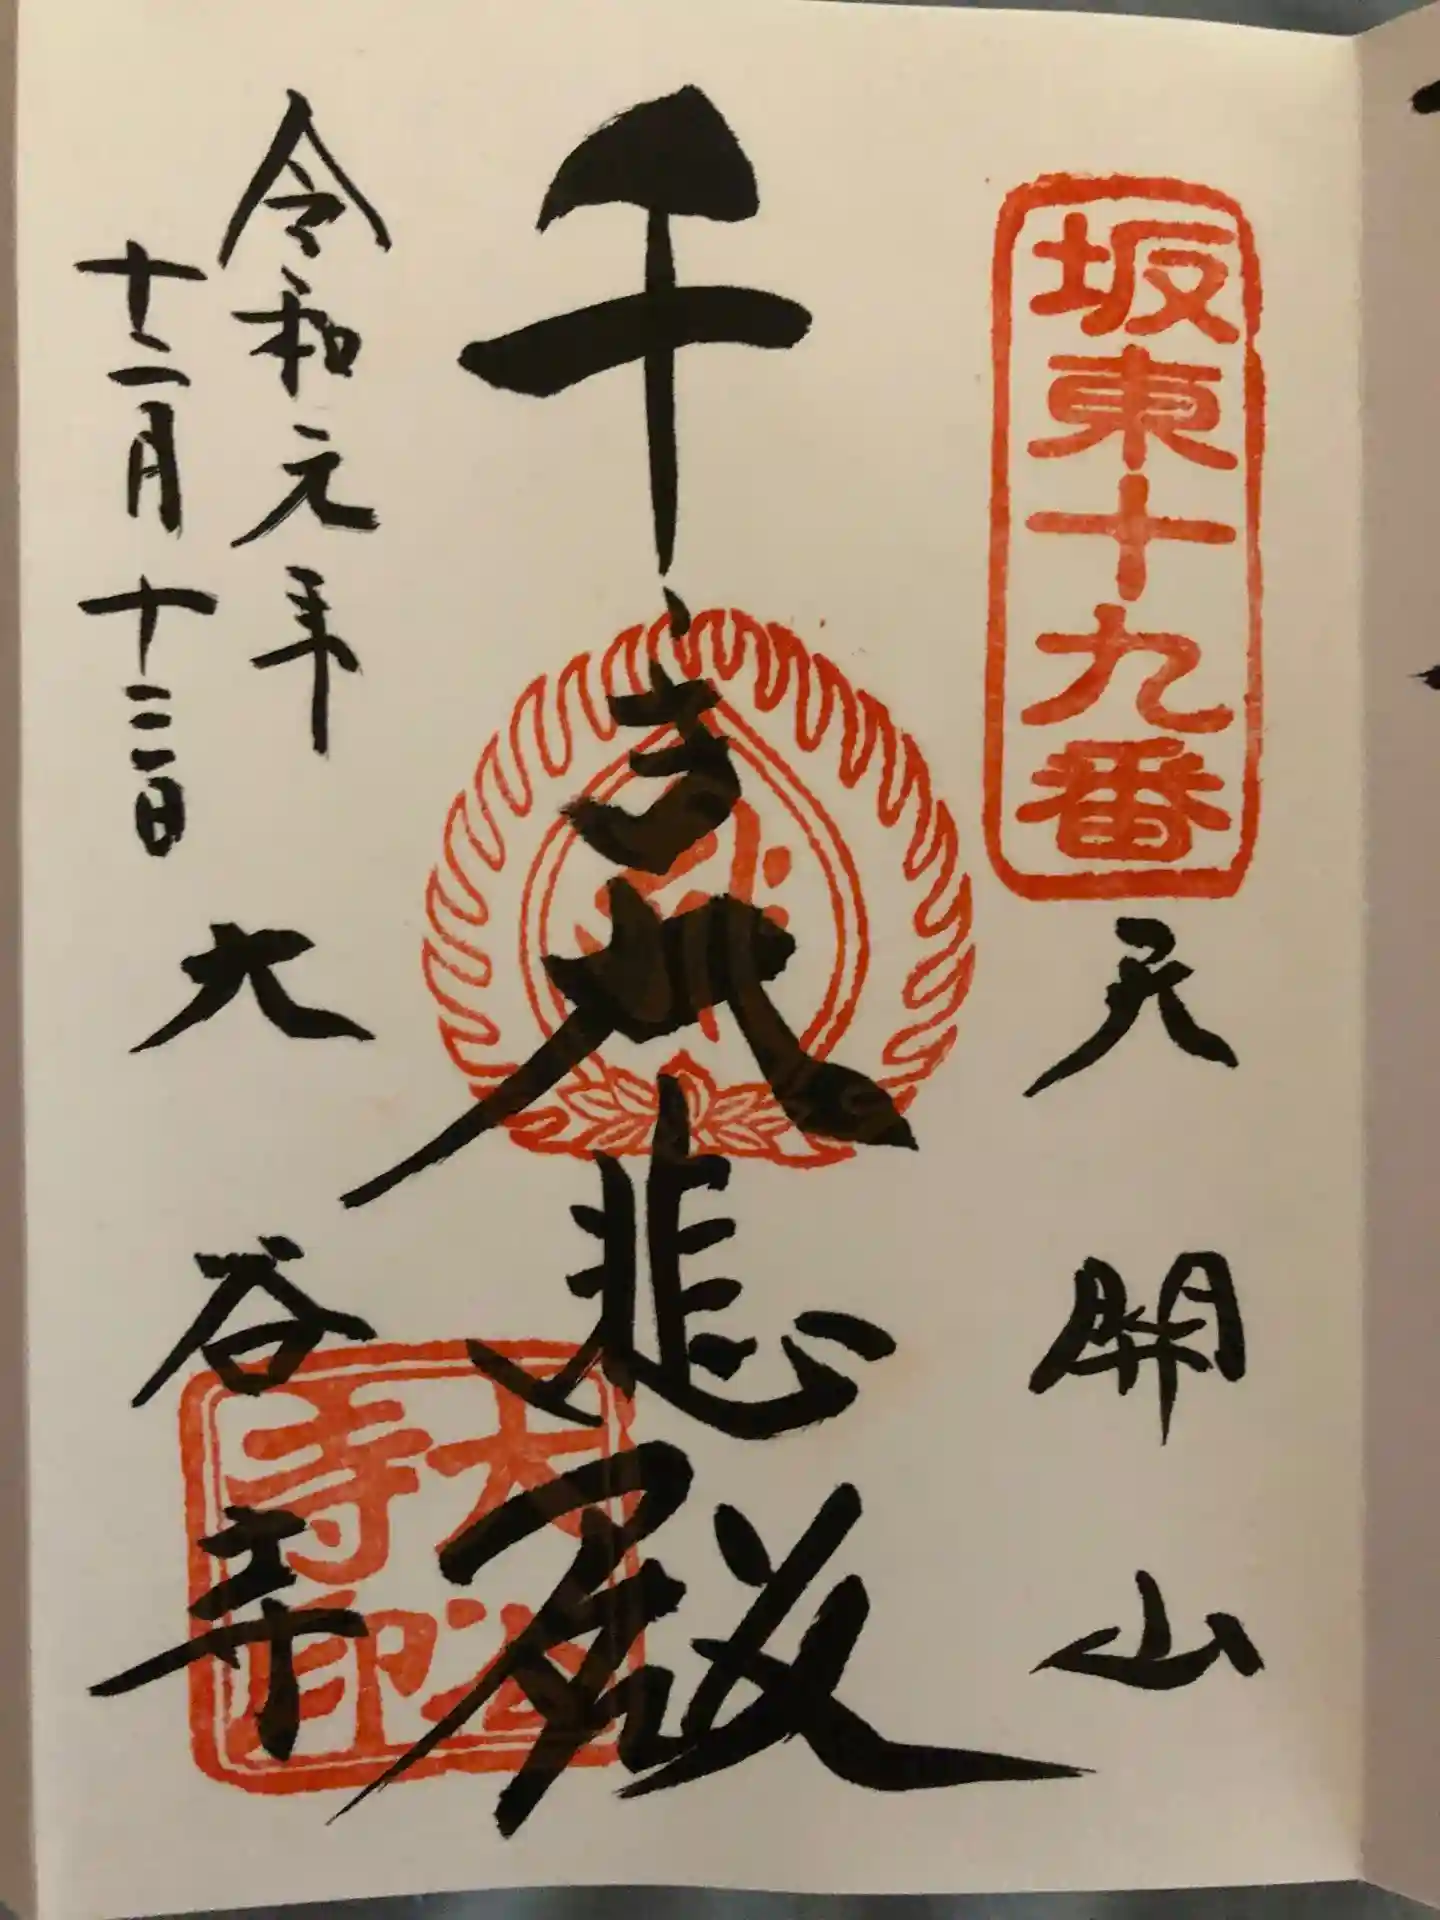 坂東十九番
天開山
千手大悲殿
大谷寺印
令和元年
十二月十二日
大谷寺